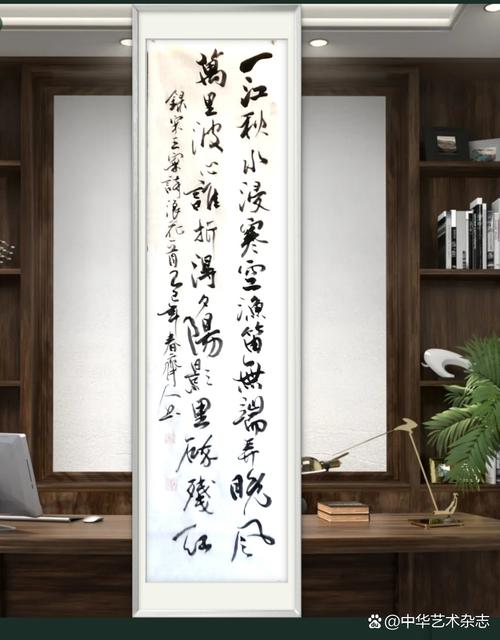 一江秋水浸寒空漁笛無端弄晚风
萬里波心誰折得夕陽影里碎殘红
録宋王寀詩浪花一首乙巳年春齊人书
@中华艺术杂志